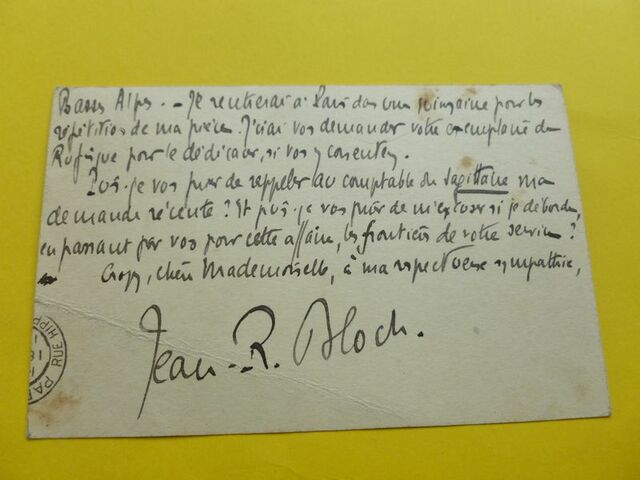 Basses Alpes. – Je rentrerai à Paris dans une quinzaine pour les
répétitions de ma pièce. J'irai vous demander votre exemplaire du
pour le dédicacer, si vous y consentez.
Puis-je vous prier de rappeler au comptable du Sagittaire ma
demande récente ? Et puis-je vous prier de m'excuser si je déborde,
en passant par vous pour cette affaire, les frontières de votre service ?
Croyez, chère Mademoiselle, à ma respectueuse sympathie,
Jean-R. Bloch.
RUE HIPP
PAR